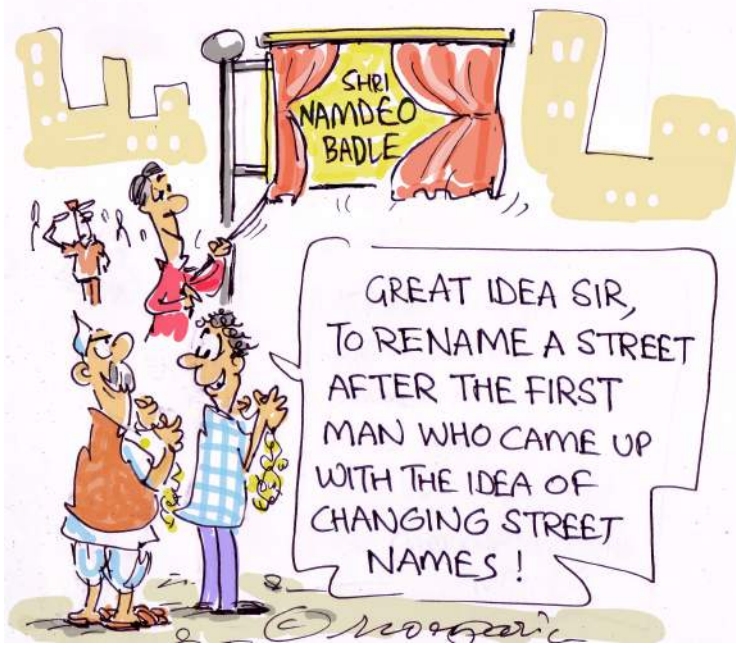 SHRI
NAMDEO
BADLE
GREAT IDEA SIR,
TO RENAME A STREET
AFTER THE FIRST
MAN WHO CAME UP
WITH THE IDEA OF
CHANGING STREET
NAMES !
©